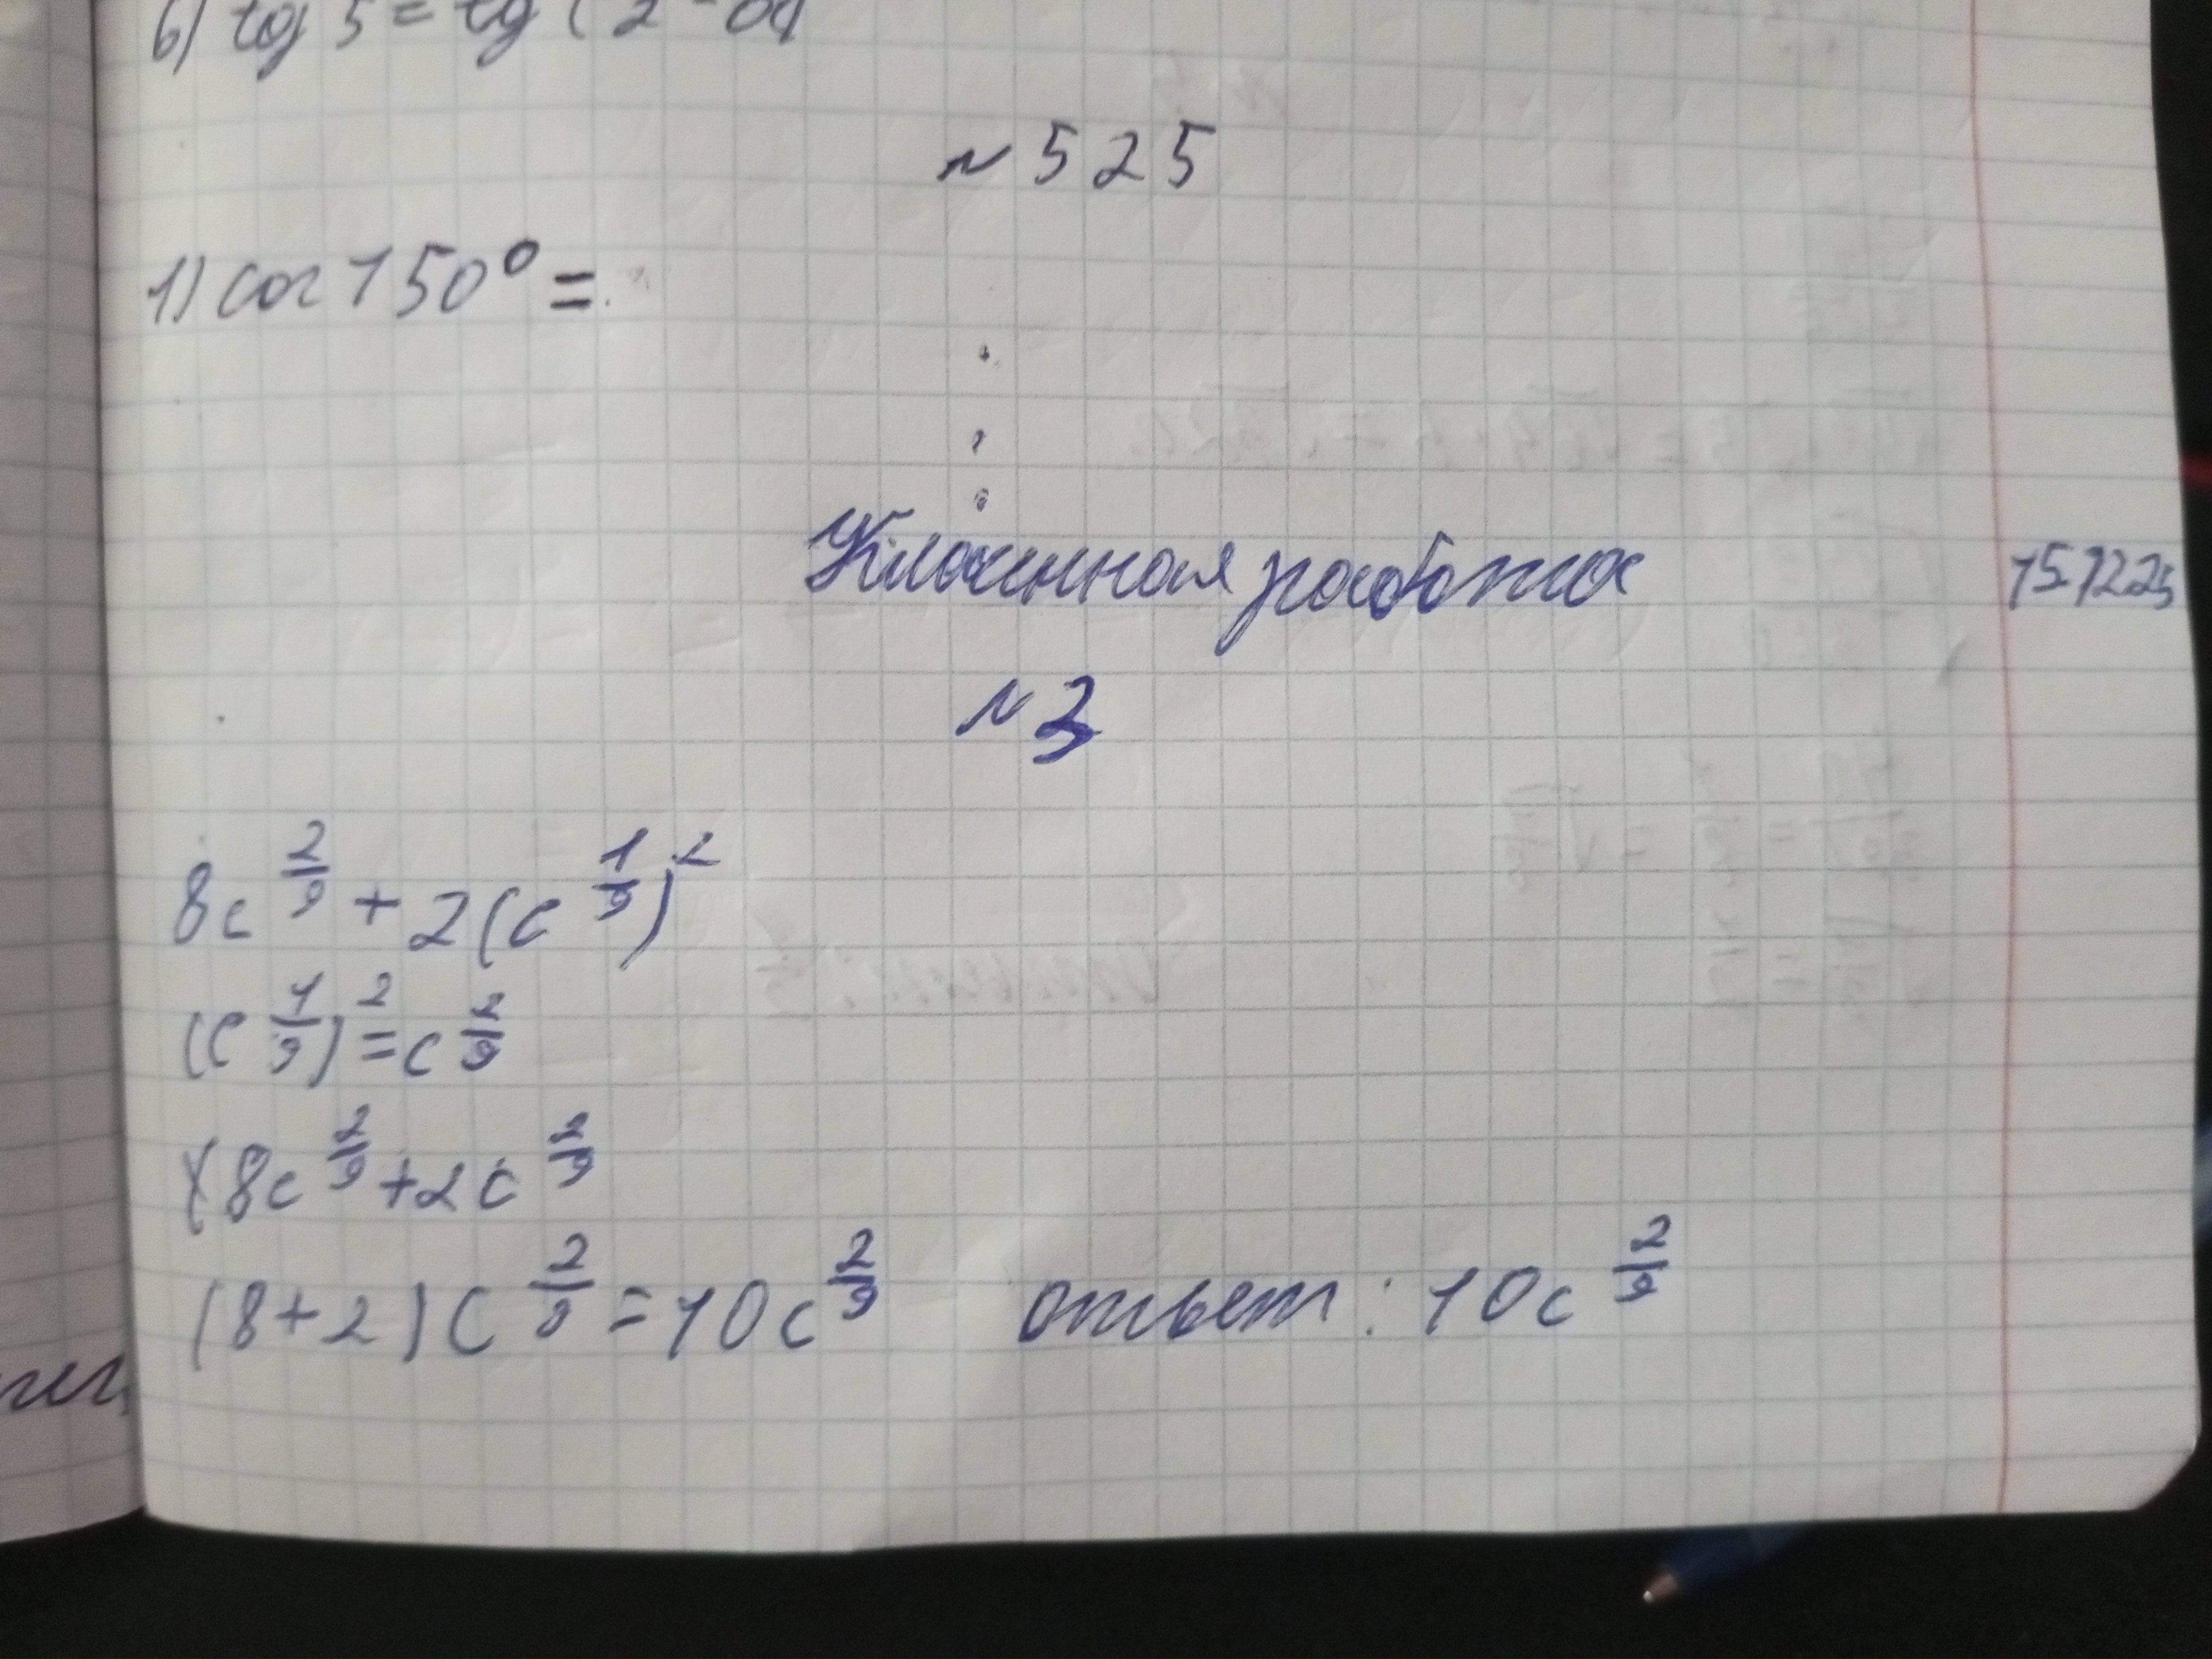 6) tg 5 = tg ( 2 -
№ 525
1) cos 150° =
Классная работа 15.12.25
№ 3
8c^(2/9) + 2(c^(1/9))^2
(c^(1/9))^2 = c^(2/9)
8c^(2/9) + 2c^(2/9)
(8+2)c^(2/9) = 10c^(2/9) ответ: 10c^(2/9)